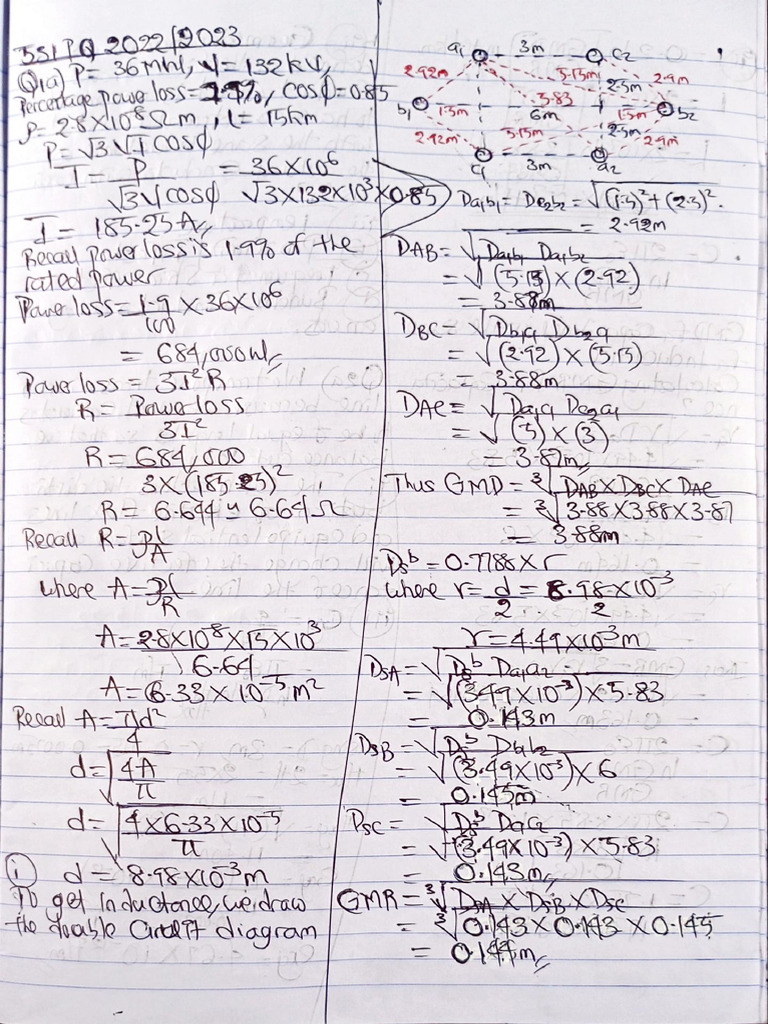 551 PQ 2022/2023
Q1a) P = 36MW, V = 132kV,
Percentage power loss = 1.9%, cosϕ = 0.85
ρ = 2.8×10⁻⁸Ωm, l = 15km
P = √3 V I cosϕ
I = P/(√3 V cosϕ) = 36×10⁶/(√3×132×10³×0.85)
I = 185.25A,
Recall power loss is 1.9% of the
rated power
Power loss = 1.9/100 × 36×10⁶
= 684,000W
Power loss = 3I²R
R = Power loss/3I²
R = 684,000/(3×(185.25)²)
R = 6.644 ≃ 6.64Ω
Recall R = ρl/A
where A = ρl/R
A = 2.8×10⁻⁸×15×10³/6.64
A = 6.33×10⁻⁵m²
Recall A = πd²/4
d = √(4A/π)
d = √(4×6.33×10⁻⁵/π)
(i) d = 8.98×10⁻³m
To get inductance, we draw
the double Circuit diagram
a₁ 3m c₂
2.92m 5.15m 2.5m 2.9m
b₁ 1.5m 5.83 6m 1.5m b₂
2.92m 5.15m 2.5m 2.9m
c₁ 3m a₂
Da₁b₁ = Dc₂b₂ = √((1.5)²+(2.5)²)
= 2.92m
DAB = √(Da₁b₁ Da₁b₂)
= √((5.15)×(2.92))
= 3.88m
DBC = √(Db₁c₁ Db₂c₁)
= √((2.92)×(5.15))
= 3.88m
DAC = √(Da₁c₁ Dc₂a₁)
= √((5)×(3))
= 3.87m
Thus GMD = ∛(DAB×DBC×DAC)
= ∛(3.88×3.88×3.87)
= 3.88m
Ds^b = 0.7788×r
where r = d/2 = 8.98×10⁻³/2
r = 4.49×10⁻³m
DSA = √(Ds^b Da₁a₂)
= √((3.49×10⁻³)×5.83)
= 0.143m
DSB = √(Ds^b Db₁b₂)
= √((3.49×10⁻³)×6)
= 0.145m
DSC = √(Ds^b Dc₁c₂)
= √((3.49×10⁻³)×5.83)
= 0.143m
GMR = ∛(DSA×DSB×DSC)
= ∛(0.143×0.143×0.145)
= 0.144m